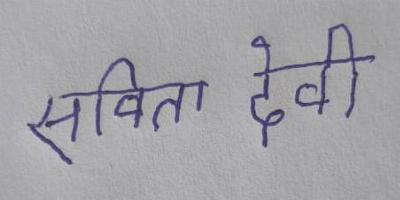 सविता देवी